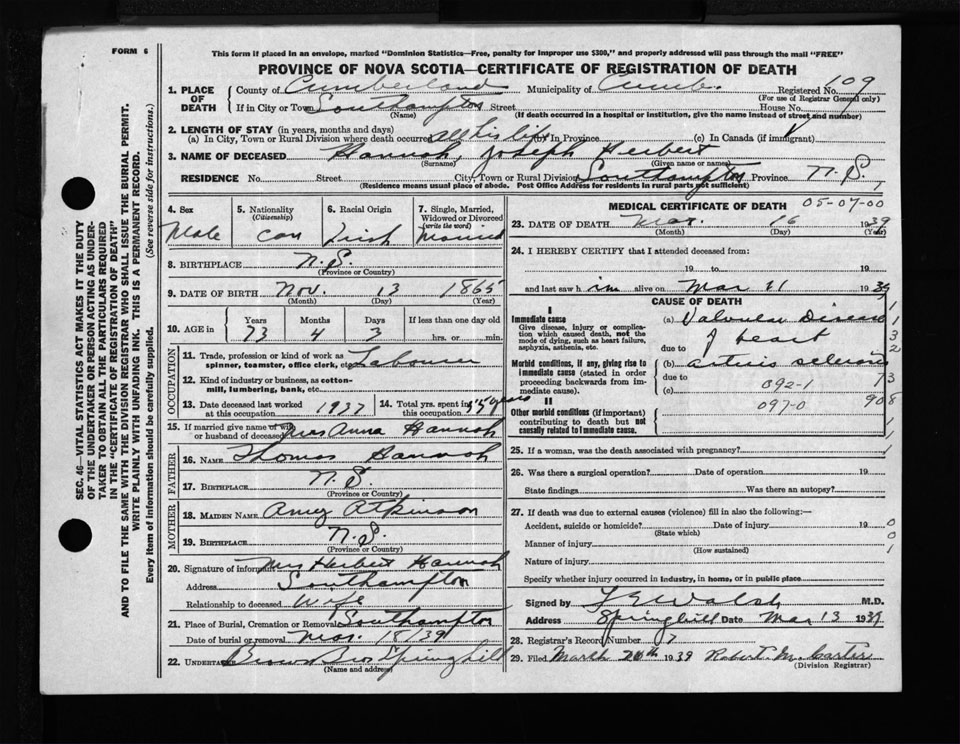 FORM 6
This form if placed in an envelope, marked "Dominion Statistics—Free, penalty for improper use $300," and properly addressed will pass through the mail "FREE"
PROVINCE OF NOVA SCOTIA—CERTIFICATE OF REGISTRATION OF DEATH
1. PLACE OF DEATH County of Cumberland Municipality of Cumb. Registered No. 109
(For use of Registrar General only)
If in City or Town Southampton Street House No.
(Name) (If death occurred in a hospital or institution, give the name instead of street and number)
2. LENGTH OF STAY (in years, months and days)
(a) In City, Town or Rural Division where death occurred all his life (b) In Province (c) In Canada (if immigrant)
3. NAME OF DECEASED Hannah, Joseph Herbert
(Surname) (Given name or names)
RESIDENCE No. Street City, Town or Rural Division Southampton Province N.S.
(Residence means usual place of abode. Post Office Address for residents in rural parts not sufficient) 7
SEC. 46—VITAL STATISTICS ACT MAKES IT THE DUTY
OF THE UNDERTAKER OR PERSON ACTING AS UNDER-
TAKER TO OBTAIN ALL THE PARTICULARS REQUIRED
IN THE "CERTIFICATE OF REGISTRATION OF DEATH"
AND TO FILE THE SAME WITH THE DIVISION REGISTRAR WHO SHALL ISSUE THE BURIAL PERMIT.
WRITE PLAINLY WITH UNFADING INK. THIS IS A PERMANENT RECORD.
Every item of information should be carefully supplied. (See reverse side for instructions.)
4. Sex 5. Nationality 6. Racial Origin 7. Single, Married,
(Citizenship) Widowed or Divorced
(write the word)
Male Can Irish Married
8. BIRTHPLACE N.S.
(Province or Country)
9. DATE OF BIRTH Nov. 13 1865
(Month) (Day) (Year)
10. AGE in Years Months Days If less than one day old
73 4 3 hrs. or min.
OCCUPATION
11. Trade, profession or kind of work as Labourer
spinner, teamster, office clerk, etc.
12. Kind of industry or business, as cotton-
mill, lumbering, bank, etc.
13. Date deceased last worked at this occupation 1937 14. Total yrs. spent in this occupation 55 years
15. If married give name of wife or husband of deceased Mrs Anna Hannah
FATHER
16. NAME Thomas Hannah
17. BIRTHPLACE N.S.
(Province or Country)
MOTHER
18. MAIDEN NAME Amy Atkinson
19. BIRTHPLACE N.S.
(Province or Country)
20. Signature of informant Mrs Herbert Hannah
Address Southampton
Relationship to deceased Wife
21. Place of Burial, Cremation or Removal Southampton
Date of burial or removal Mar. 18/39
22. UNDERTAKER Brown Bro Springhill
(Name and address)
MEDICAL CERTIFICATE OF DEATH 05-07-00
23. DATE OF DEATH Mar. 16 1939
(Month) (Day) (Year)
24. I HEREBY CERTIFY that I attended deceased from:
19 to 19
and last saw him alive on Mar 11 1939
CAUSE OF DEATH
I
Immediate cause (a) Valvular Disease
Give disease, injury or complica-
tion which caused death, not the
mode of dying, such as heart failure,
asphyxia, asthenia, etc. due to of heart
Morbid conditions, if any, giving rise to
immediate cause (stated in order
proceeding backwards from im-
mediate cause). (b) arterio sclerosis
due to
(c) 092-1
II
Other morbid conditions (if important)
contributing to death but not
causally related to immediate cause. 097-0
1
3
2
73
908
1
1
25. If a woman, was the death associated with pregnancy?
26. Was there a surgical operation? Date of operation 19
State findings Was there an autopsy?
27. If death was due to external causes (violence) fill in also the following:—
Accident, suicide or homicide? Date of injury 19 0
(State which)
Manner of injury 0
(How sustained) 1
Nature of injury
Specify whether injury occurred in industry, in home, or in public place
Signed by Walsh M.D.
Address Springhill Date Mar 13 1939
28. Registrar's Record Number 7
29. Filed March 20th 1939 Robert M. Carter
(Division Registrar)